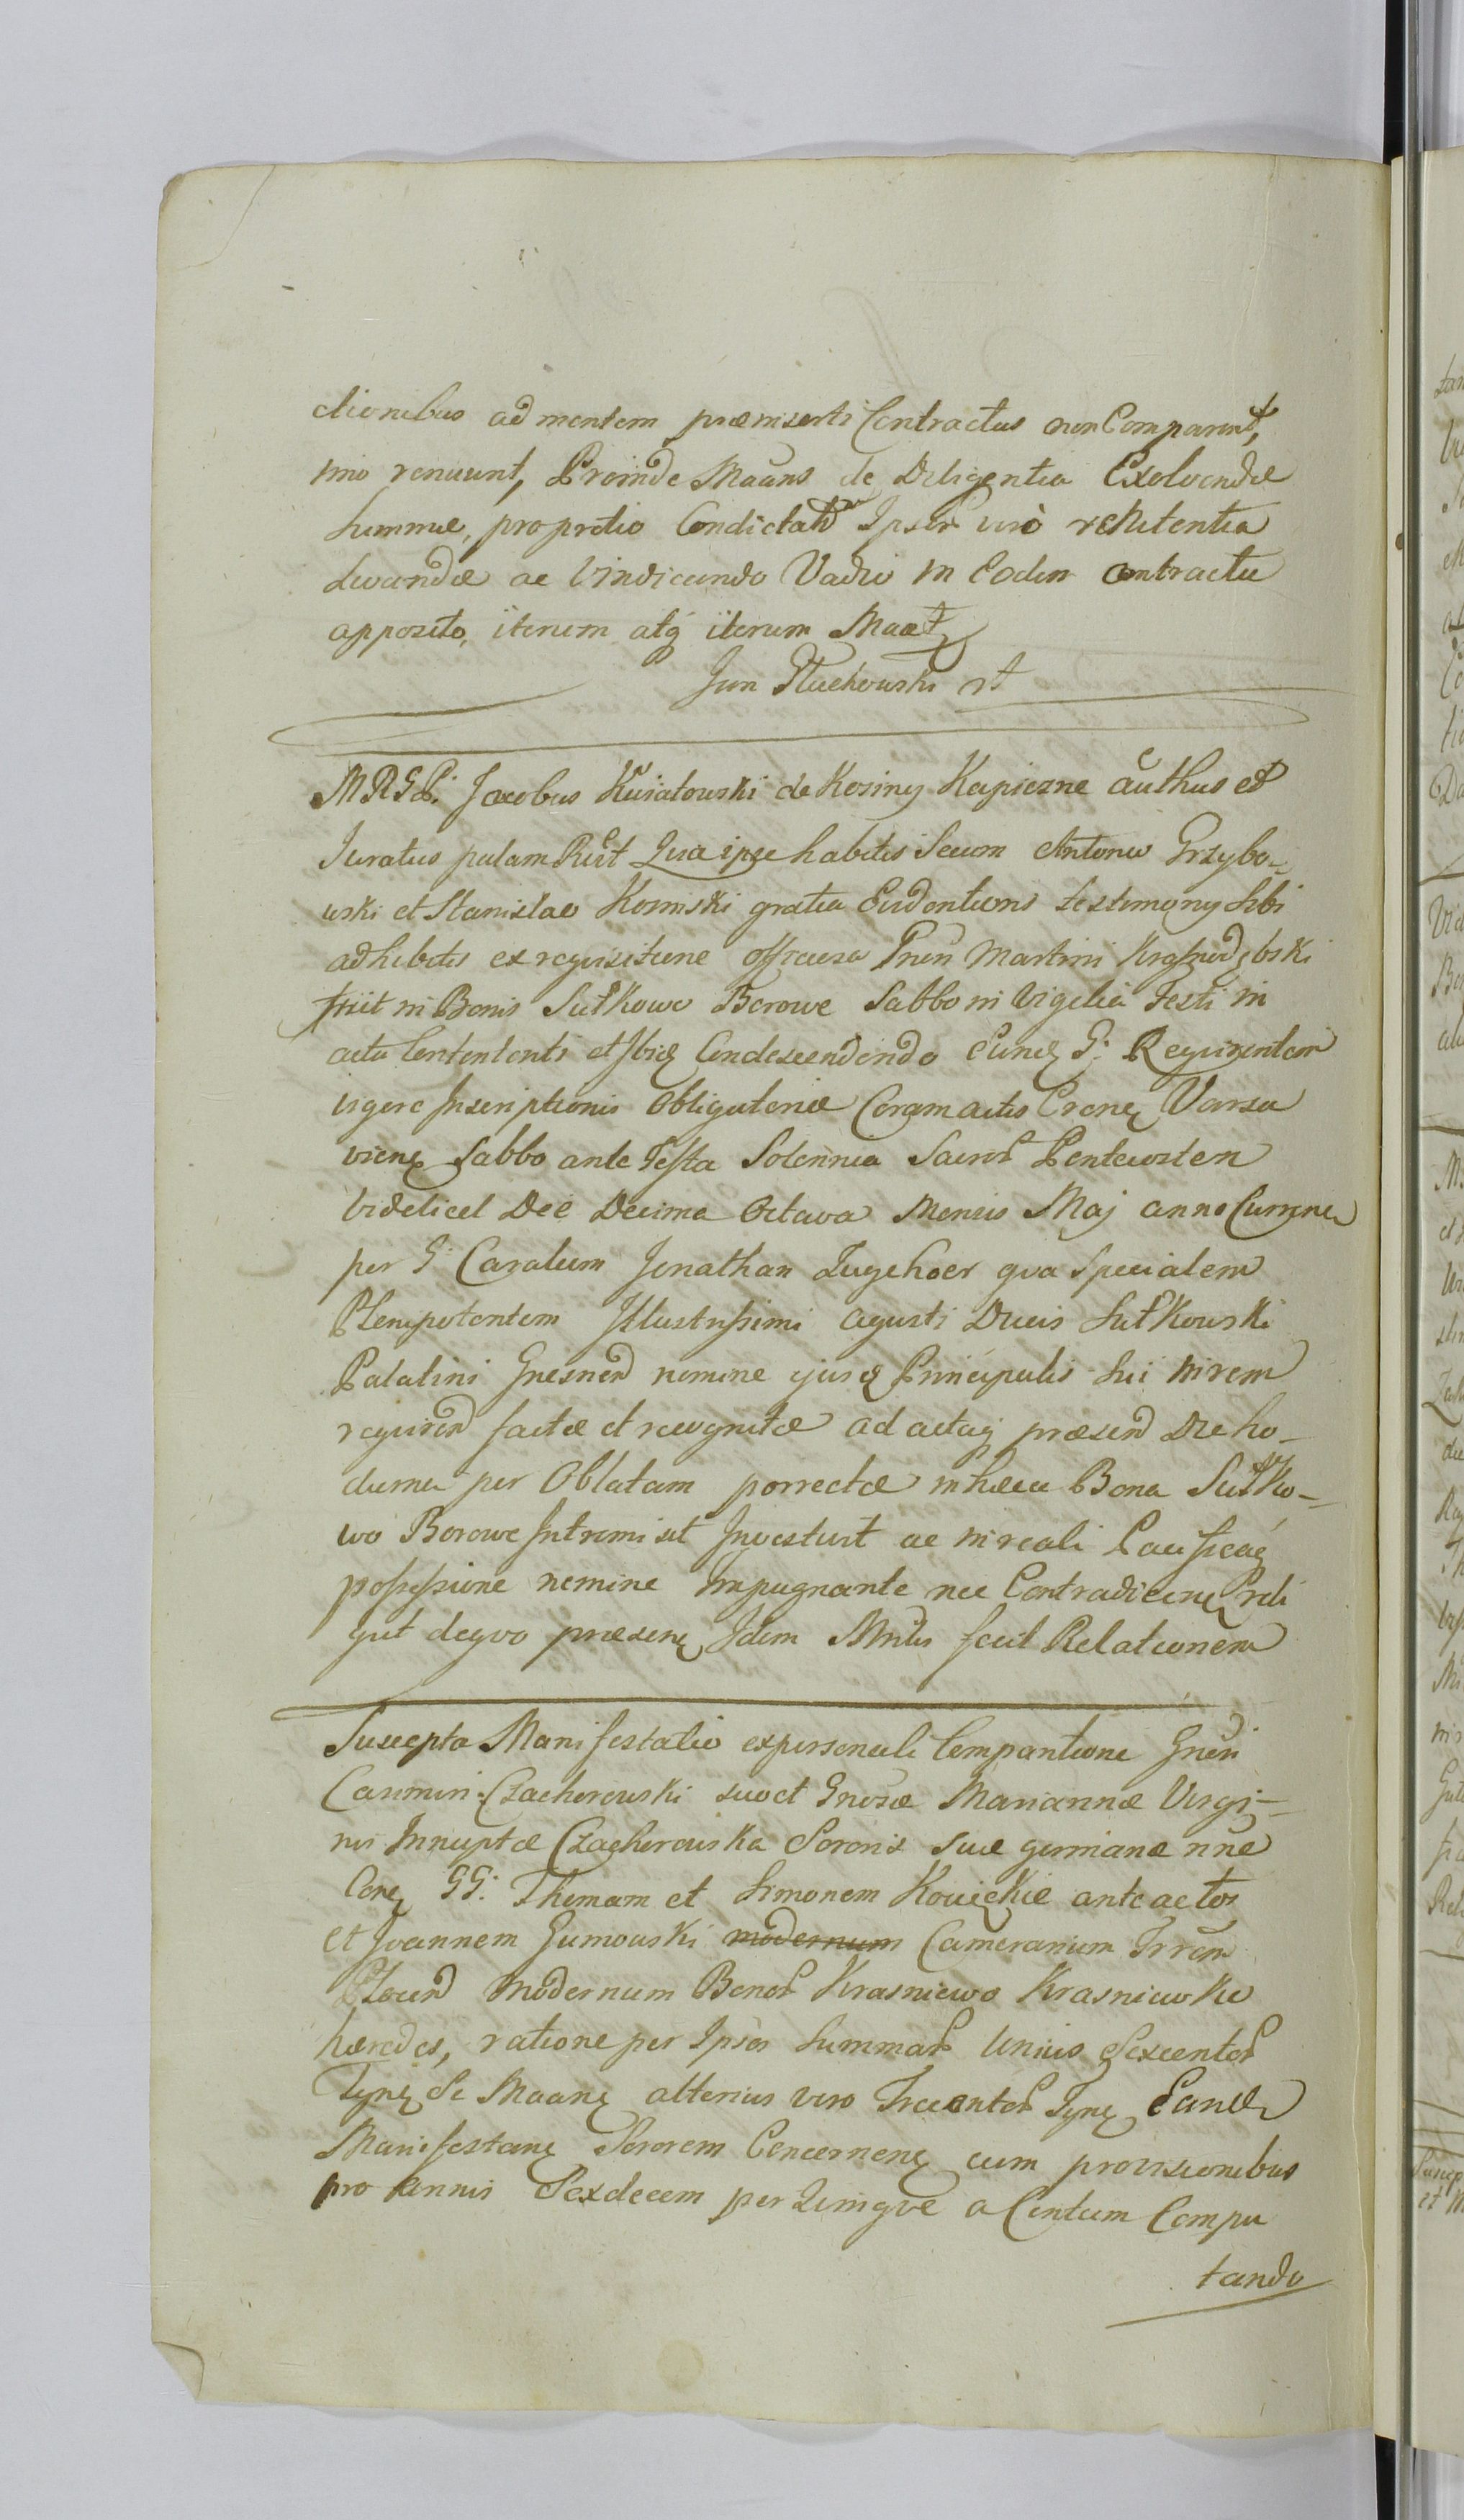 ctionibus ad mentem præmiserti Contractus non Comparent,
imo renuunt, Proinde Maans de Diligentia Exolvendæ
Summæ, pro pretio Condictatæ Ipsor vero renitentia
Levandæ ac Vindicando Vadio in Eodem Contractu
apposito, iterum atq iterum Maat
Jan Pluchowski
M R G P. Jacobus Kwiatowski de Kosiny Kapiczne authus et
Juratus palam Rcit Quia ipse habitis Secum Antonio Grzybo-
wski et Stanislao Kosinski gratia Evidentioris testimony Sibi
adhibitis ex requisitione officiosa Martini Krasnodębski
fuit in Bonis Sułkowo Borowe Sabbo in Vigilia Festi in
actu Contenti et Ibiq Condescendendo Eunq G. Requirentem
vigore Inscriptionis Obligatoriæ Coram actis Crenę Varsa
vienę Sabbo ante Festa Solennia Sacror Pentecosten
videlicet Die Decima Octava Mensis Maj anno Currenę
per G. Carolum Jonathan Zugehoer qva Specialem
Plenipotentem Illustrissimi Agusti Ducis Sułkowski
Palatini Gnesnen nomine ejusq Principalis Sui in rem
requiren factæ et recognitæ ad actaq præsen Die ho-
dierna per Oblatam porrectæ in hæcce Bona Sułko-
wo Borowe Intromisit Investivit ac in reali Pacificaq
possessione nemine Impugnante nec Contradicenę reli
qvit de qvo præsenę Idem Mnlis fecit Relationem
Suscepta Manifestatio ex personali Comparitione Gnsi
Casimiri Czacherowski suo et Gnosæ Mariannæ Virgi-
nis Innuptæ Czacherowska Sororis Suæ germanæ nne
Conę GG. Thomam et Simonem Kowickie ante actos
et Joannem Gumowski modernum Camerarium Trrem
Plocen Modernum Bonor Krasniewo Krasniewko
hæredes, ratione per Ipsos Summar Unius Sexcentor
Tynę Se Maanę alterius vero Trecentor Tynę Eandę
Manifestanę Sororem Concernenę cum provisionibus
pro Annis Sexdecem per Qvinqve a Centum Compu
tando